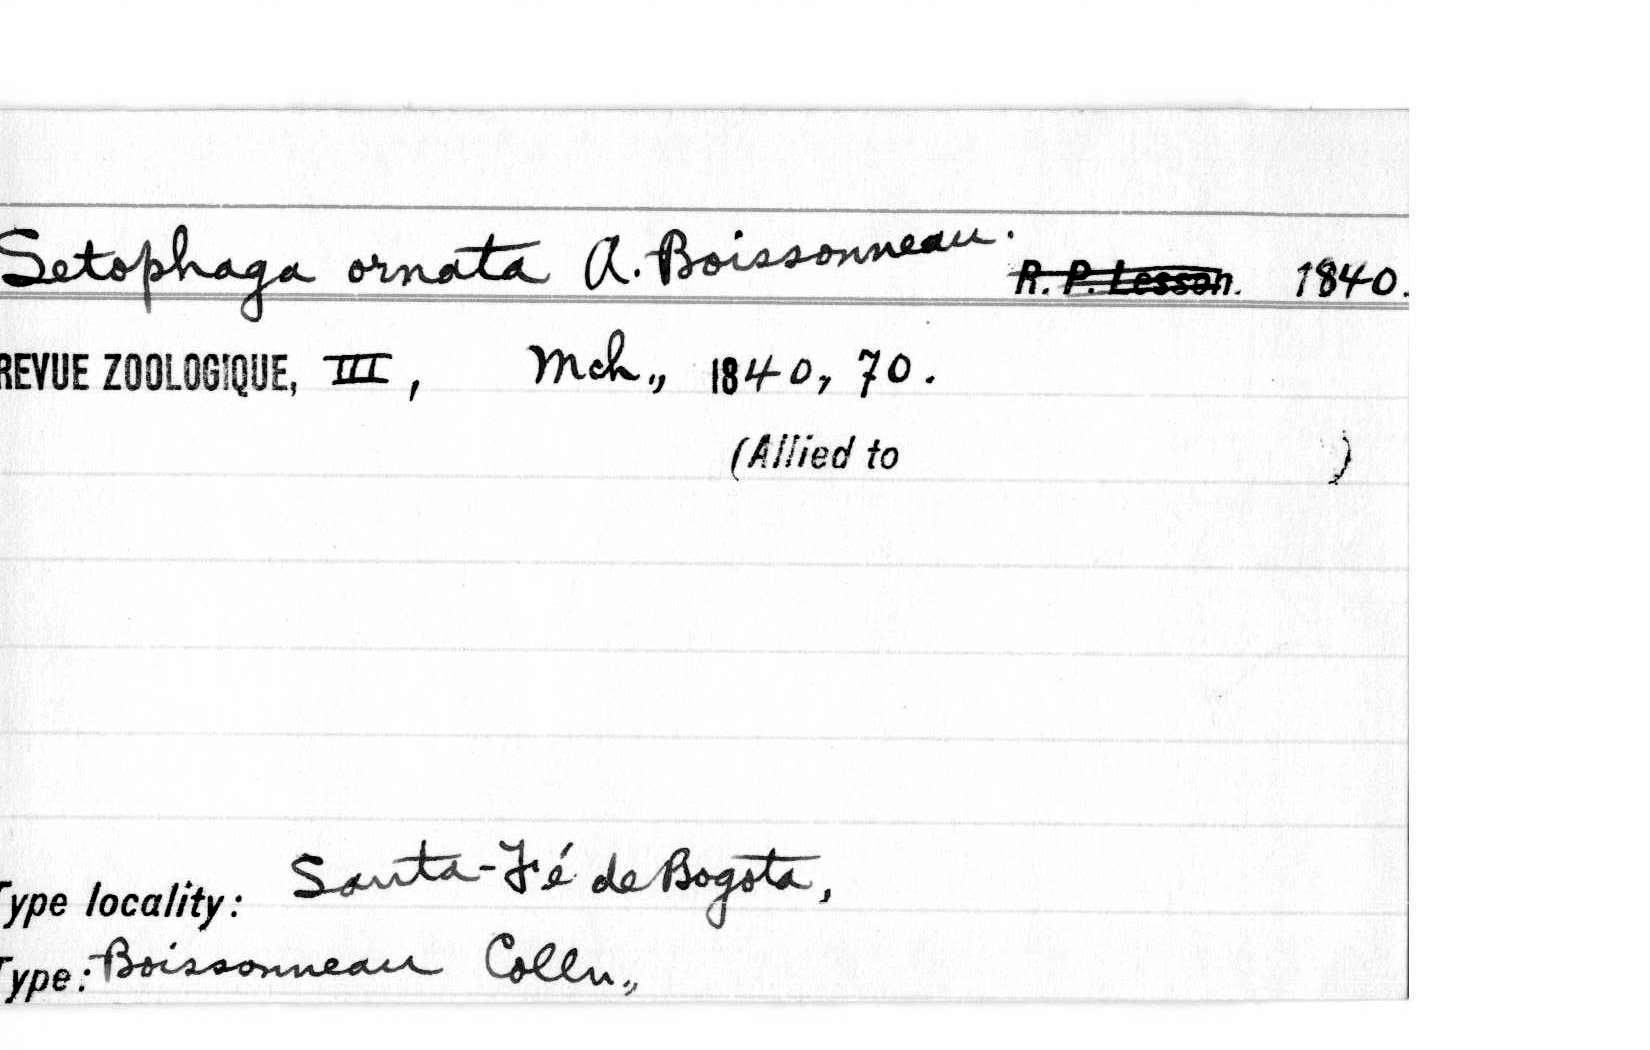 Setophaga ornata A. Boissonneau. R. P. Lesson. 1840.
REVUE ZOOLOGIQUE, III, Mch., 1840, 70.
(Allied to )
Type locality: Santa-Fé de Bogota,
Type: Boissonneau Colln.,